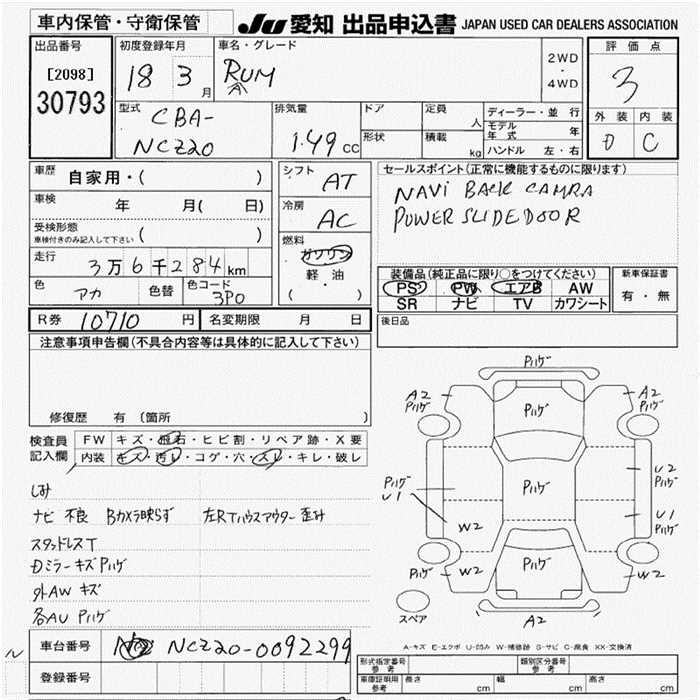 車内保管・守衛保管
JU 愛知 出品申込書 JAPAN USED CAR DEALERS ASSOCIATION
出品番号
[2098]
30793
初度登録年月
18 3 月
車名・グレード
RUM
2WD
・
4WD
評価点
3
外装 内装
D C
型式
CBA-
NCZ20
排気量
1.49 CC
ドア
形状
定員
人
積載
kg
ディーラー・並行
モデル
年式 年
ハンドル 左・右
車歴
自家用・( )
車検
年 月( 日)
受検形態
車検付きのみ記入して下さい ( )
走行
3万6千284km
色
アカ
色替
色コード
3P0
シフト
AT
冷房
AC
燃料
ガソリン
軽・油
( )
セールスポイント(正常に機能するものに限ります)
NAVi BACK CAMRA
POWER SLIDEDOOR
装備品(純正品に限り○をつけてください)
PS PW エアB AW
SR ナビ TV カワシート
新車保証書
有・無
R券 10710 円
名変期限 月 日
後日品
注意事項申告欄(不具合内容等は具体的に記入して下さい)
修復歴 有 (箇所 )
検査員
記入欄
FW キズ・飛石・ヒビ割・リペア跡・X要
内装 キズ・汚レ・コゲ・穴・スレ・キレ・破レ
しみ
ナビ 不良 Bカメラ映らず 左RTハウスアウター歪み
スタッドレスT
Dミラーキズ Pハゲ
外AW キズ
各AU Pハゲ
Pハゲ
A2
Pハゲ
A2
Pハゲ
Pハゲ
Pハゲ
U1
Pハゲ
U2
Pハゲ
U1
Pハゲ
W2
Pハゲ
W2
Pハゲ
W2
A2
スペア
A-キズ E-エクボ U-凹み W-補修跡 S-サビ C-腐食 XX-交換済
車台番号
NCZ20-0092299
登録番号
形式指定番号
参考
類別区分番号
参考
車庫証明用
参考
長さ cm
幅 cm
高さ cm